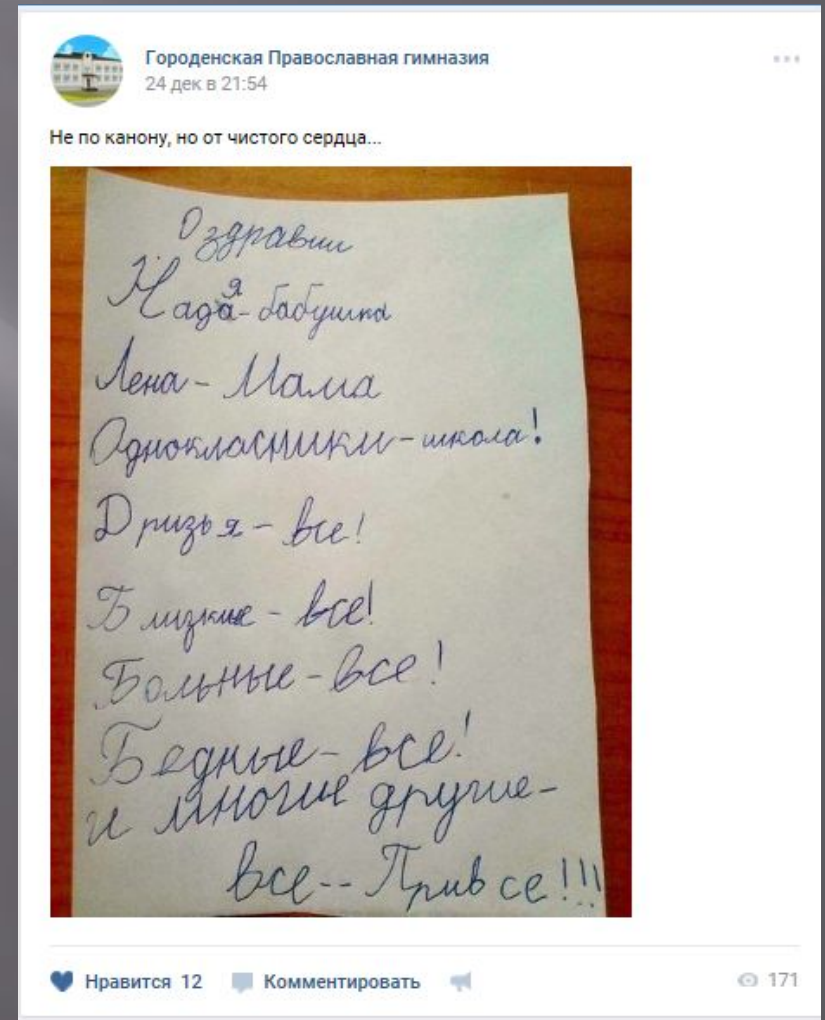 Городенская Православная гимназия
24 дек в 21:54
Не по канону, но от чистого сердца...
О здравии
Надя - бабушка
Лена - Мама
Однокласники - школа!
Друзья - все!
Близкие - все!
Больные - все!
Бедные - все!
и многие другие -
все -- Прив се!!!
Нравится 12
Комментировать
171